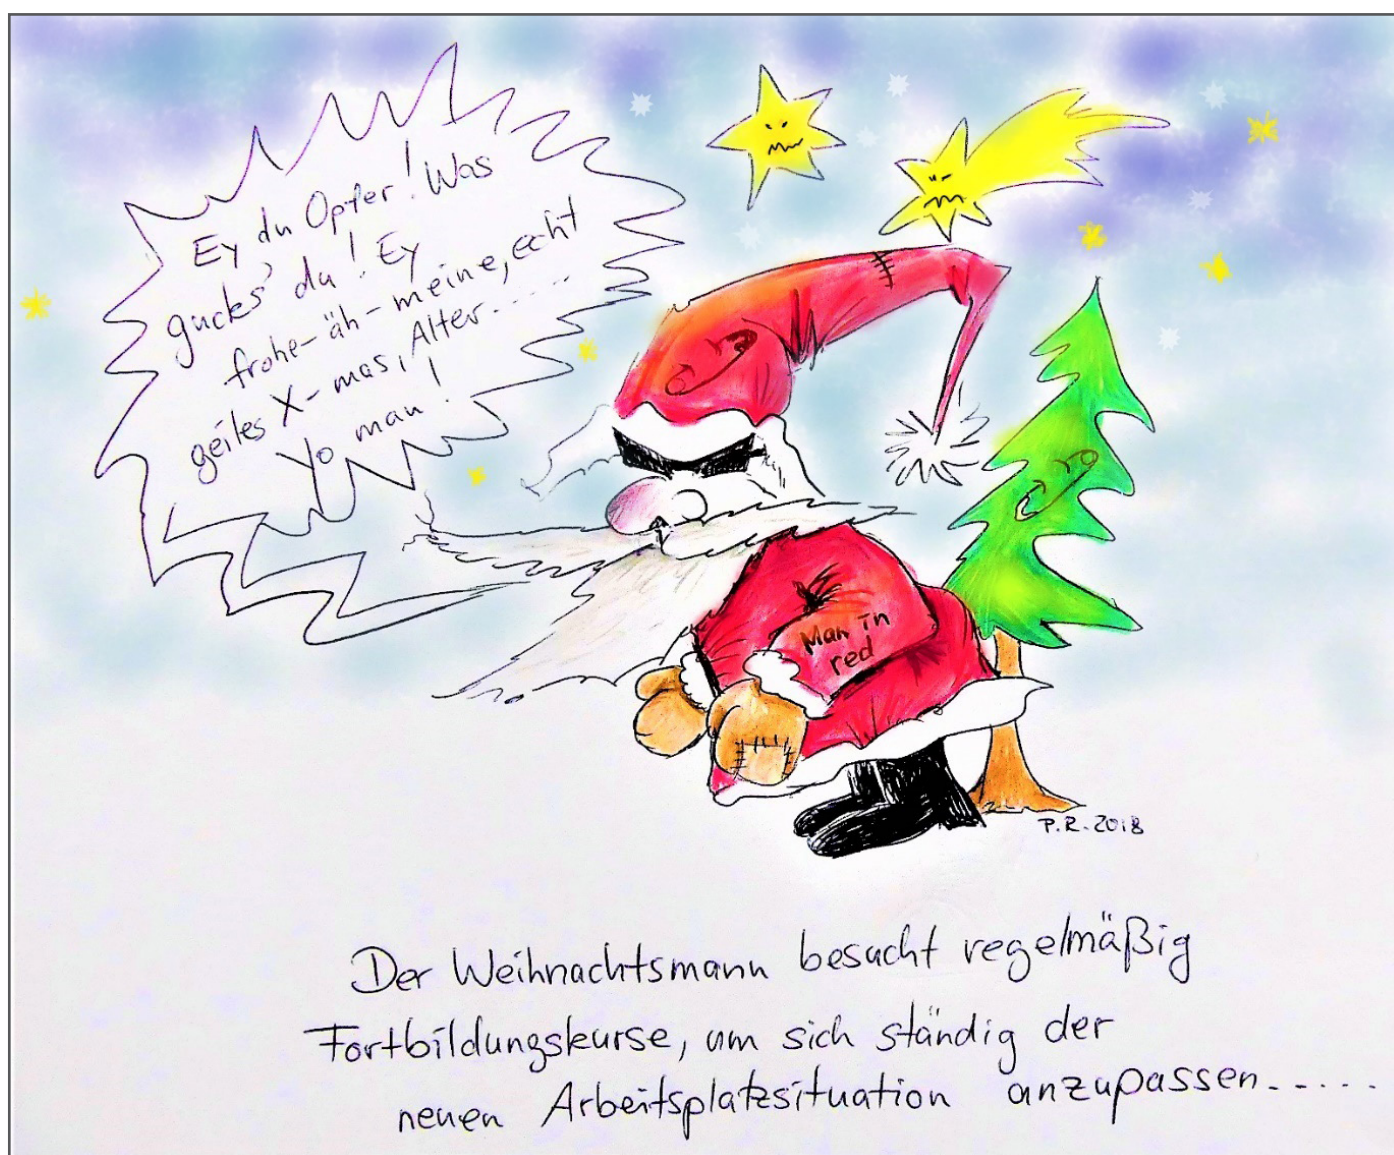 Ey du Opfer! Was
gucks' du! Ey
frohe-äh-meine, echt
geiles X-mas, Alter.....
Yo man!
Man in
red
P.R. 2018
Der Weihnachtsmann besucht regelmäßig
Fortbildungskurse, um sich ständig der
neuen Arbeitsplatzsituation anzupassen......